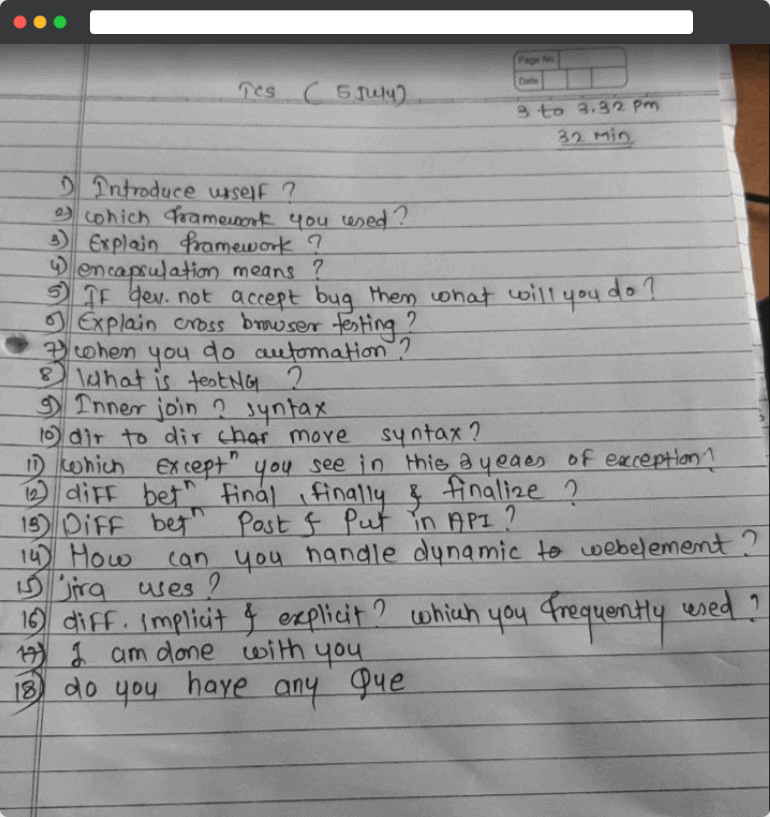 Page No.
Date
TCS ( 5 July)
3 to 3.32 pm
32 Min
1) Introduce urself ?
2) which framework you used ?
3) Explain framework ?
4) encapsulation means ?
5) IF dev. not accept bug them what will you do ?
6) Explain cross browser testing ?
7) when you do automation ?
8) What is testNG ?
9) Inner join ? syntax
10) dir to dir char move syntax ?
11) which Exceptⁿ you see in this 2 yeaes of exception ?
12) diff betⁿ final , finally & finalize ?
13) Diff betⁿ Post & Put in API ?
14) How can you handle dynamic to webelement ?
15) jira uses ?
16) diff. implicit & explicit ? which you frequently used ?
17) I am done with you
18) do you have any Que